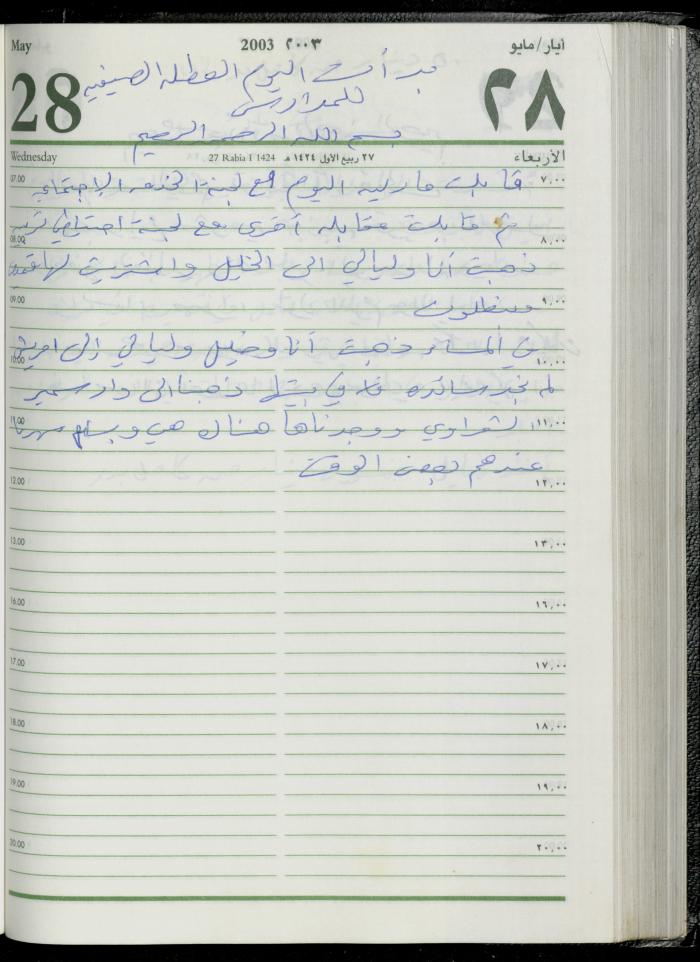 May 2003 ٢٠٠٣ أيار/مايو
28 ٢٨
بدأت اليوم العطله الصيفيه
للمدارس
بسم الله الرحمن الرحيم
Wednesday 27 Rabia I 1424 ٢٧ ربيع الأول ١٤٢٤ هـ الأربعاء
07.00 قابلت ماريه اليوم مع لجنة الخدمه الإجتماعيه ٧,٠٠
ثم قابلت مقابله أخرى مع لجنة
08.00 ٨,٠٠
ذهبت أنا وليالي الى الخليل واشتريت لها
09.00 وبنطلون ٩,٠٠
في المساء ذهبت أنا وخليل وليالي إلى
10.00 ١٠,٠٠
لم نجد سائده في بيتها ذهبنا الى دار سمير
11.00 الشعراوي ووجدناها هناك هي وبسام سهرنا ١١,٠٠
عندهم بعض الوقت
12.00 ١٢,٠٠
13.00 ١٣,٠٠
16.00 ١٦,٠٠
17.00 ١٧,٠٠
18.00 ١٨,٠٠
19.00 ١٩,٠٠
20.00 ٢٠,٠٠